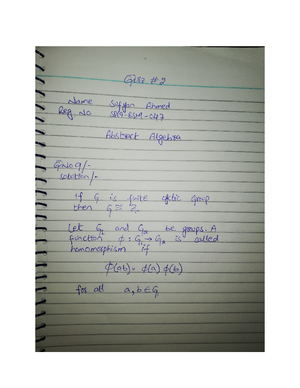 Quiz # 2
Name Sufyan Ahmed
Reg NO
Abstract Algebra
Q.No 9/-
Solution/-
If G is finite cyclic group
then G ≅ Z
Let G and G be groups. A
function φ: G → G is called
homomorphism if
φ(ab) = φ(a) φ(b)
for all a, b ∈ G